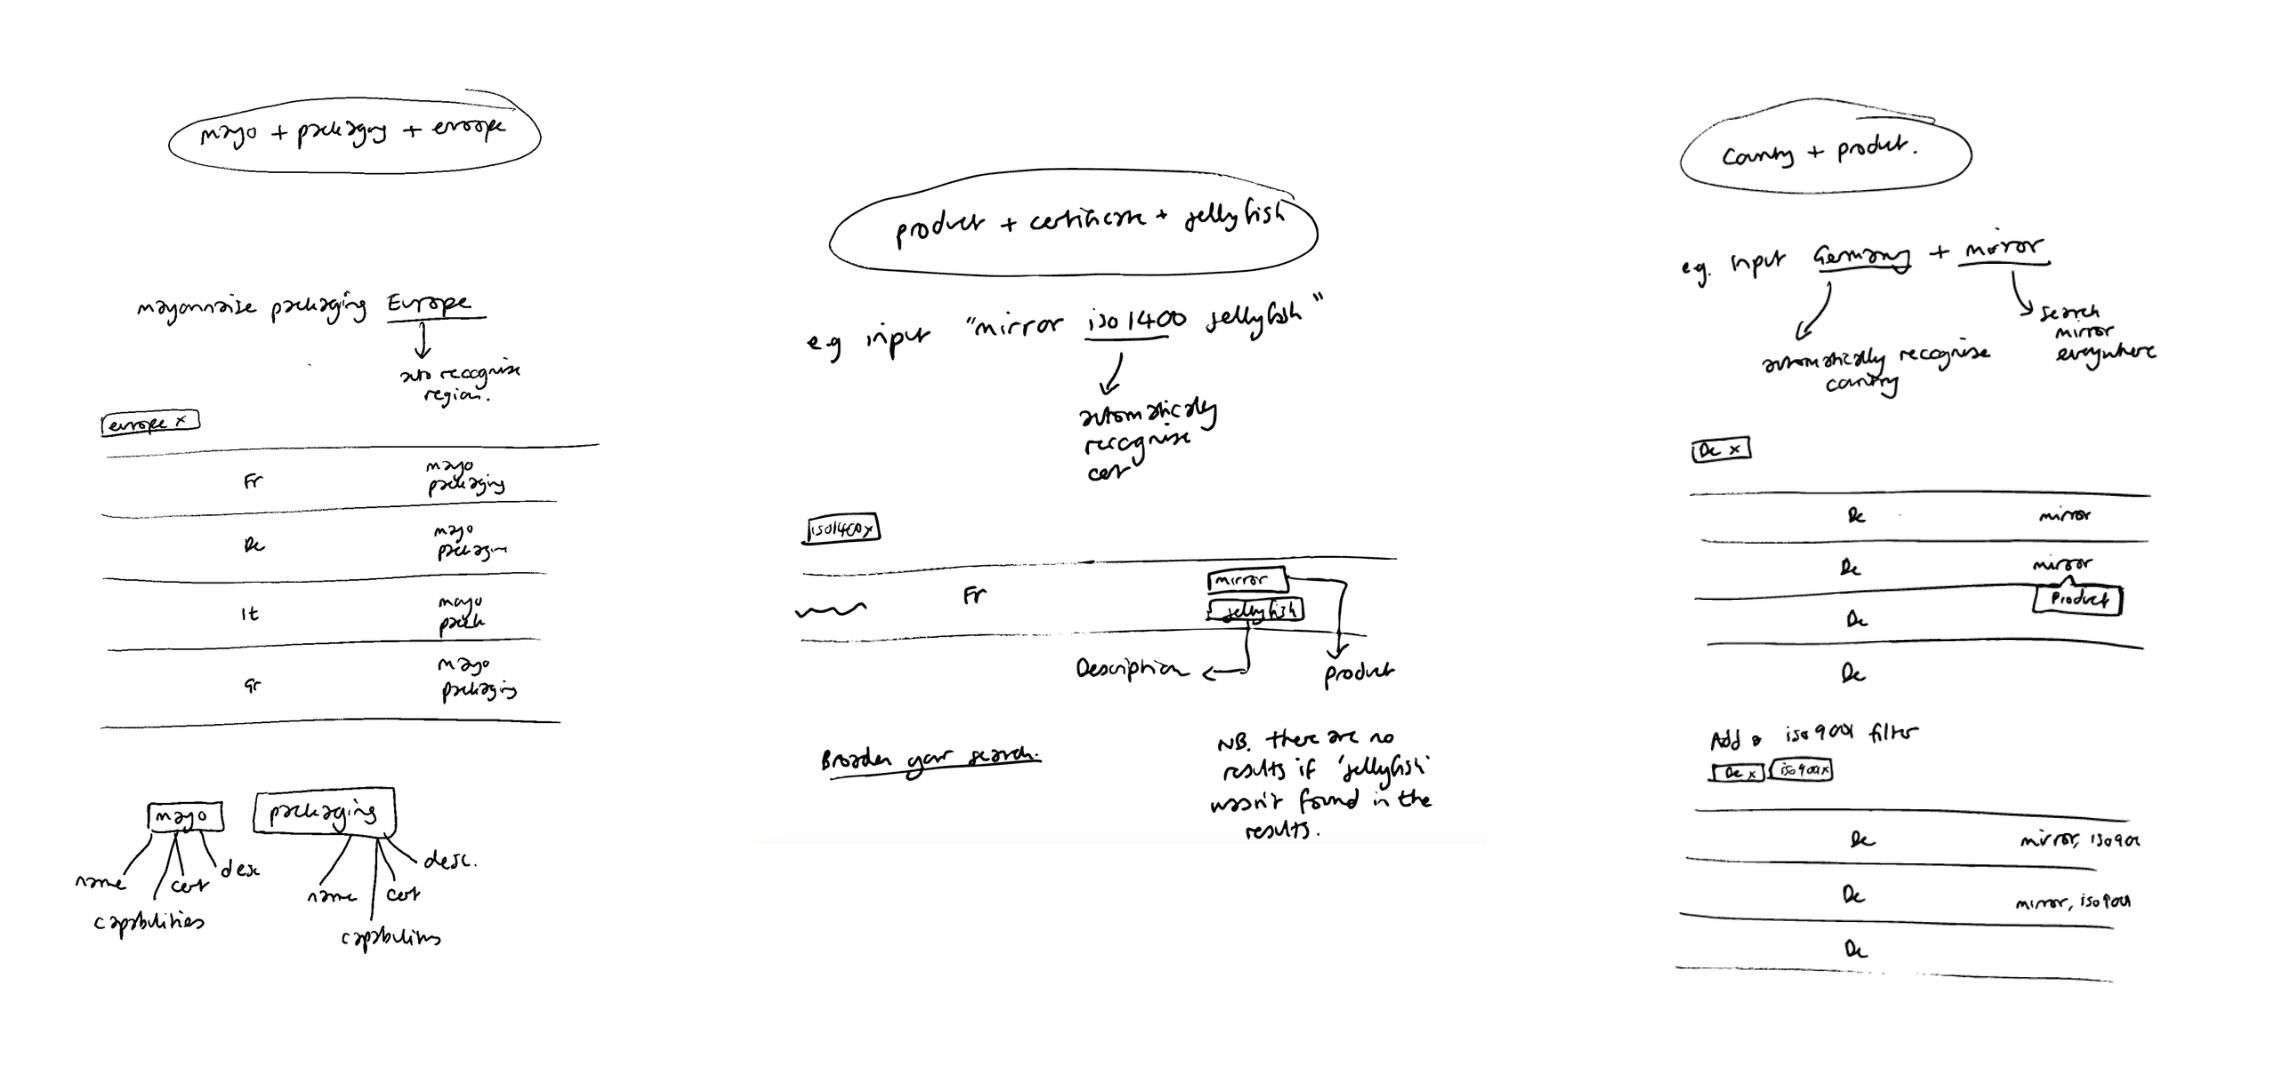 mayo + packaging + europe
mayonnaise packaging Europe
auto recognise
region.
europe x
Fr
mayo
packaging
De
mayo
packaging
It
mayo
pack
Gr
mayo
packaging
mayo
packaging
name
cert
desc
capabilities
name
cert
desc.
capabilities
product + certificate + jellyfish
e.g input "mirror iso1400 jellyfish"
automatically
recognise
cert
iso1400x
Fr
mirror
jellyfish
Description
product
Broaden your search.
NB. there are no
results if 'jellyfish'
wasn't found in the
results.
Country + product.
e.g. input Germany + mirror
automatically recognise
country
search
mirror
everywhere
De x
De
mirror
De
mirror
Product
De
De
Add a iso9001 filter
De x
iso9001x
De
mirror, iso9001
De
mirror, iso9001
De